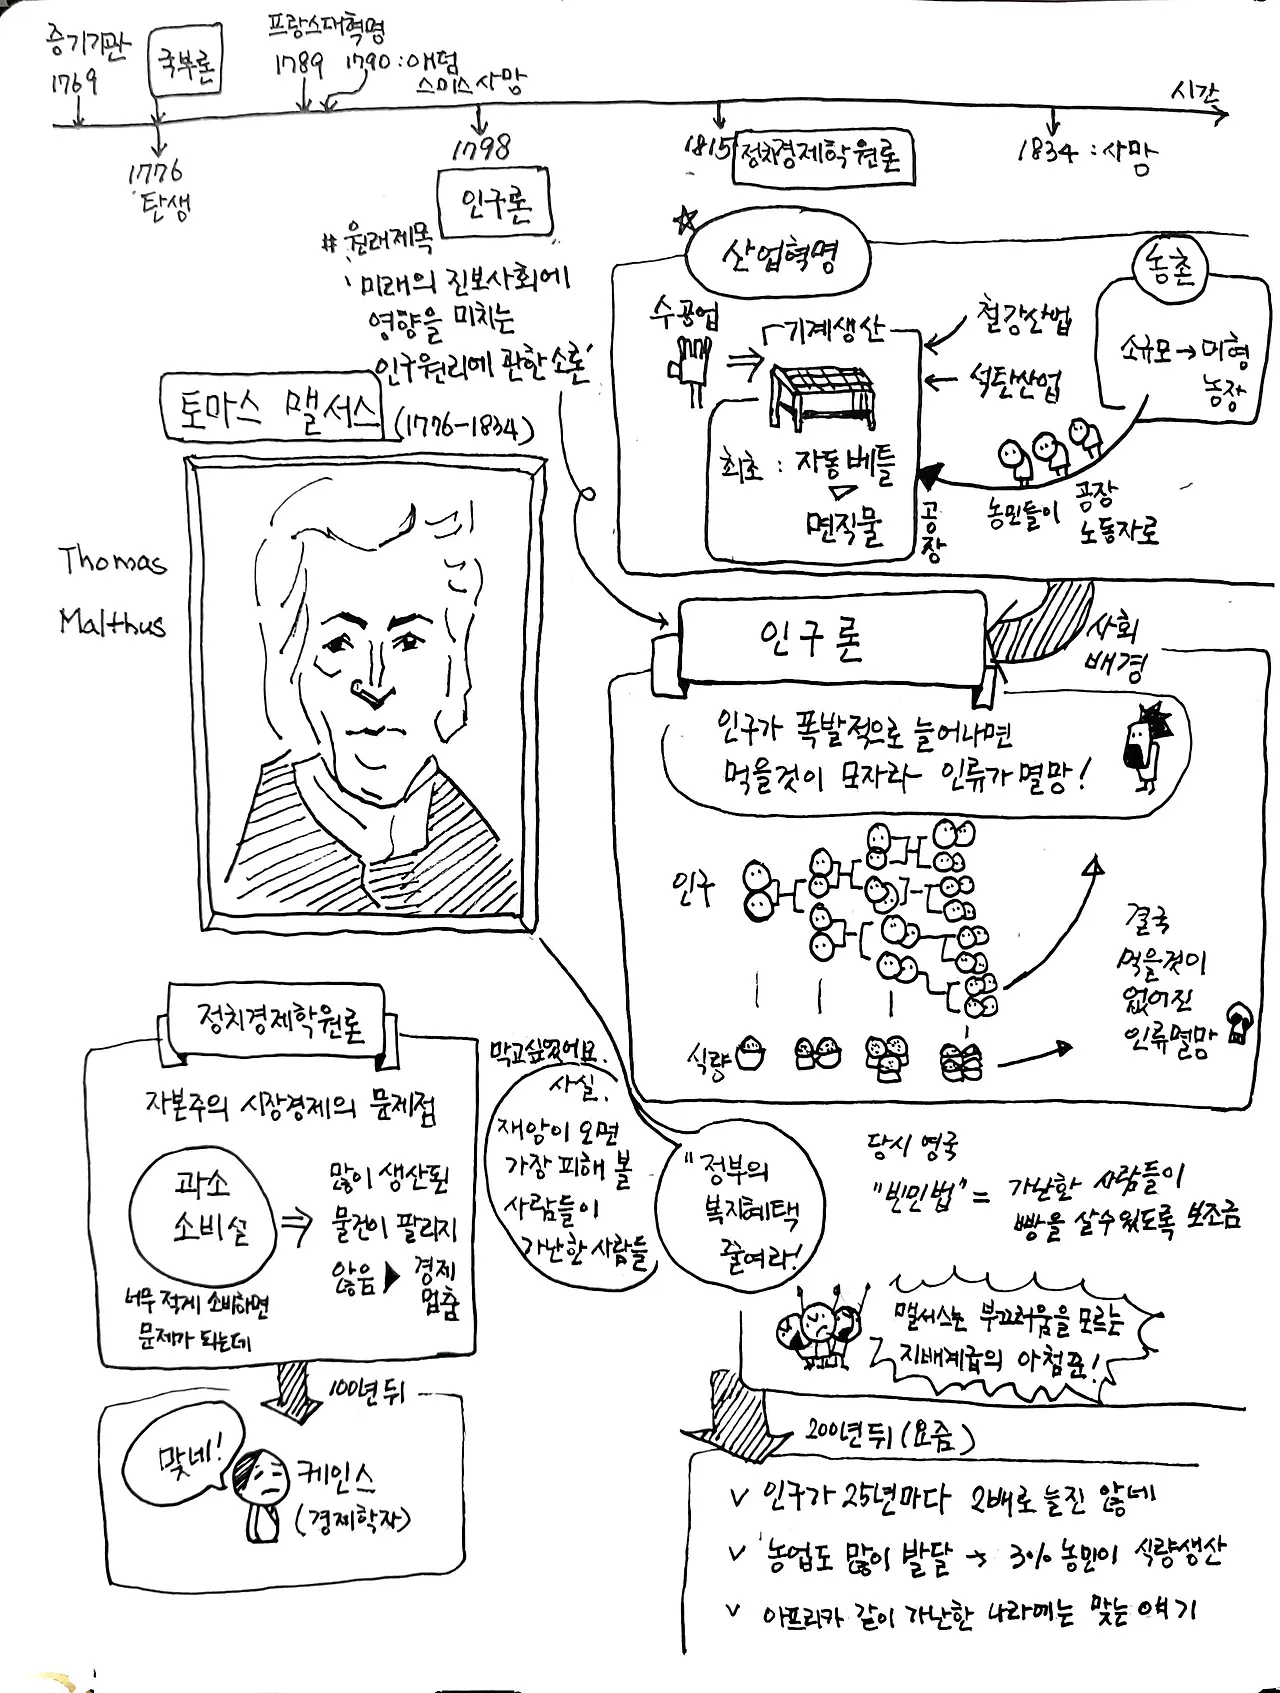 증기기관
1769
국부론
프랑스대혁명
1789
1790 : 애덤
스미스 사망
시간
1776
탄생
1798
인구론
1815
정치경제학원론
1834 : 사망
# 원래제목
'미래의 진보사회에
영향을 미치는
인구원리에 관한 소론'
토마스 맬서스
(1776-1834)
Thomas
Malthus
산업혁명
수공업
기계생산
철강산업
석탄산업
최초 : 자동베틀
면직물
공장
농촌
소규모 → 대형
농장
농민들이 공장
노동자로
사회
배경
인구론
인구가 폭발적으로 늘어나면
먹을것이 모자라 인류가 멸망!
인구
식량
결국
먹을것이
없어진
인류멸망
정치경제학원론
자본주의 시장경제의 문제점
과소
소비설
많이 생산된
물건이 팔리지
않음 ▶ 경제
멈춤
너무 적게 소비하면
문제가 되는데
100년 뒤
맞네!
케인스
(경제학자)
막고싶었어요.
사실,
재앙이 오면
가장 피해 볼
사람들이
가난한 사람들
"정부의
복지혜택
줄여라!
당시 영국
"빈민법" = 가난한 사람들이
빵을 살수있도록 보조금
맬서스는 부끄러움을 모르는
지배계급의 아첨꾼!
200년 뒤 (요즘)
v 인구가 25년마다 2배로 늘진 않네
v 농업도 많이 발달 → 3% 농민이 식량생산
v 아프리카 같이 가난한 나라에는 맞는 얘기